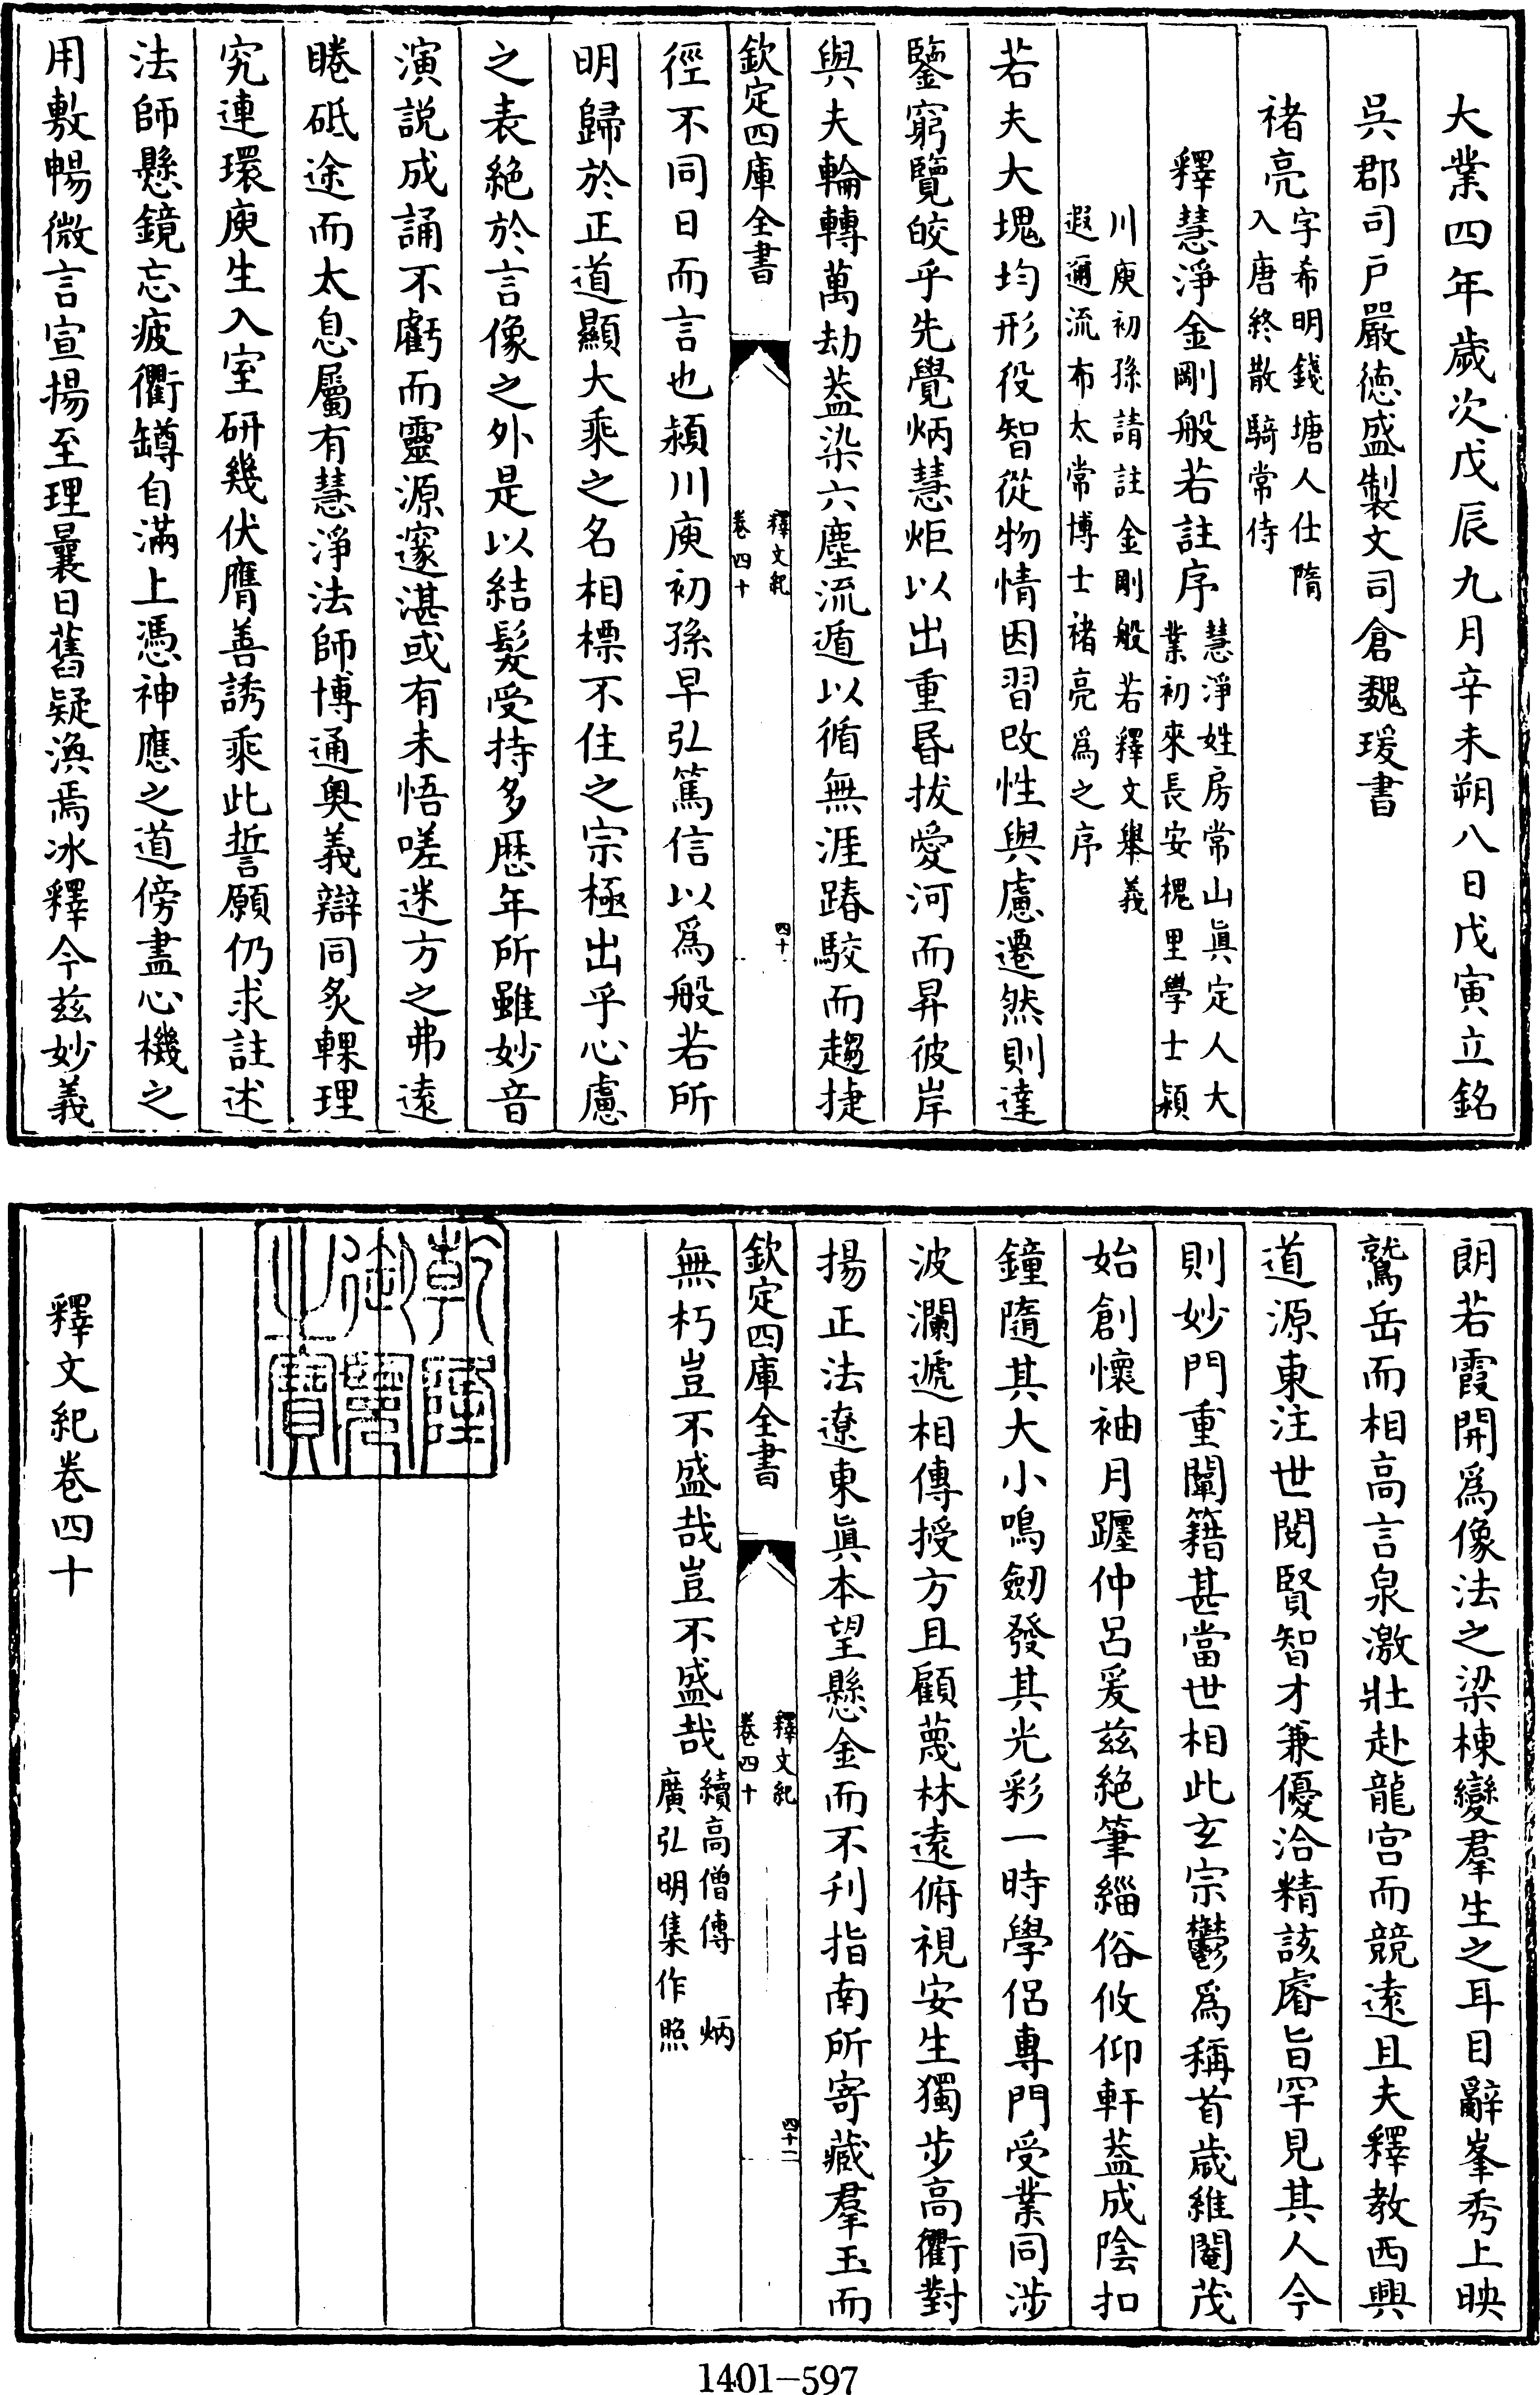 大業四年歲次戊辰九月辛未朔八日戊寅立銘
吳郡司戶嚴德盛製文司倉魏瑗書
褚亮字希明錢塘人仕隋
入唐終散騎常侍
釋慧淨金剛般若註序慧淨姓房常山眞定人大
業初來長安槐里學士潁
川庾初孫請註金剛般若釋文舉義
遐邇流布太常博士褚亮爲之序
若夫大塊均形役智從物情因習改性與慮遷然則達
鑒窮覽皎乎先覺炳慧炬以出重昏拔愛河而昇彼岸
與夫輪轉萬劫蓋染六塵流遁以循無涯踳駮而趨捷
欽定四庫全書
釋文紀
卷四十
四十
徑不同日而言也潁川庾初孫早弘篤信以爲般若所
明歸於正道顯大乘之名相標不住之宗極出乎心慮
之表絶於言像之外是以結髮受持多歷年所雖妙音
演說成誦不虧而靈源邃湛或有未悟嗟迷方之弗遠
睠砥途而太息屬有慧淨法師博通奥義辯同炙輠理
究連環庾生入室研幾伏膺善誘乘此誓願仍求註述
法師懸鏡忘疲衢罇自滿上憑神應之道傍盡心機之
用敷暢微言宣揚至理曩日舊疑渙焉冰釋今兹妙義
朗若霞開爲像法之梁棟變羣生之耳目辭峯秀上映
鷲岳而相高言泉激壯赴龍宫而競遠且夫釋教西興
道源東注世閱賢智才兼優洽精該睿旨罕見其人今
則妙門重闡籍甚當世相此玄宗鬱爲稱首歲維閹茂
始創懷袖月躔仲呂爰兹絶筆緇俗攸仰軒蓋成陰扣
鐘隨其大小鳴劒發其光彩一時學侶專門受業同涉
波瀾遞相傳授方且顧蔑林遠俯視安生獨步高衢對
揚正法遼東眞本望懸金而不刋指南所寄藏羣玉而
欽定四庫全書
釋文紀
卷四十
四十一
無朽豈不盛哉豈不盛哉續高僧傳 炳
廣弘明集作照
乾隆
御覽
之寶
釋文紀卷四十
1401-597